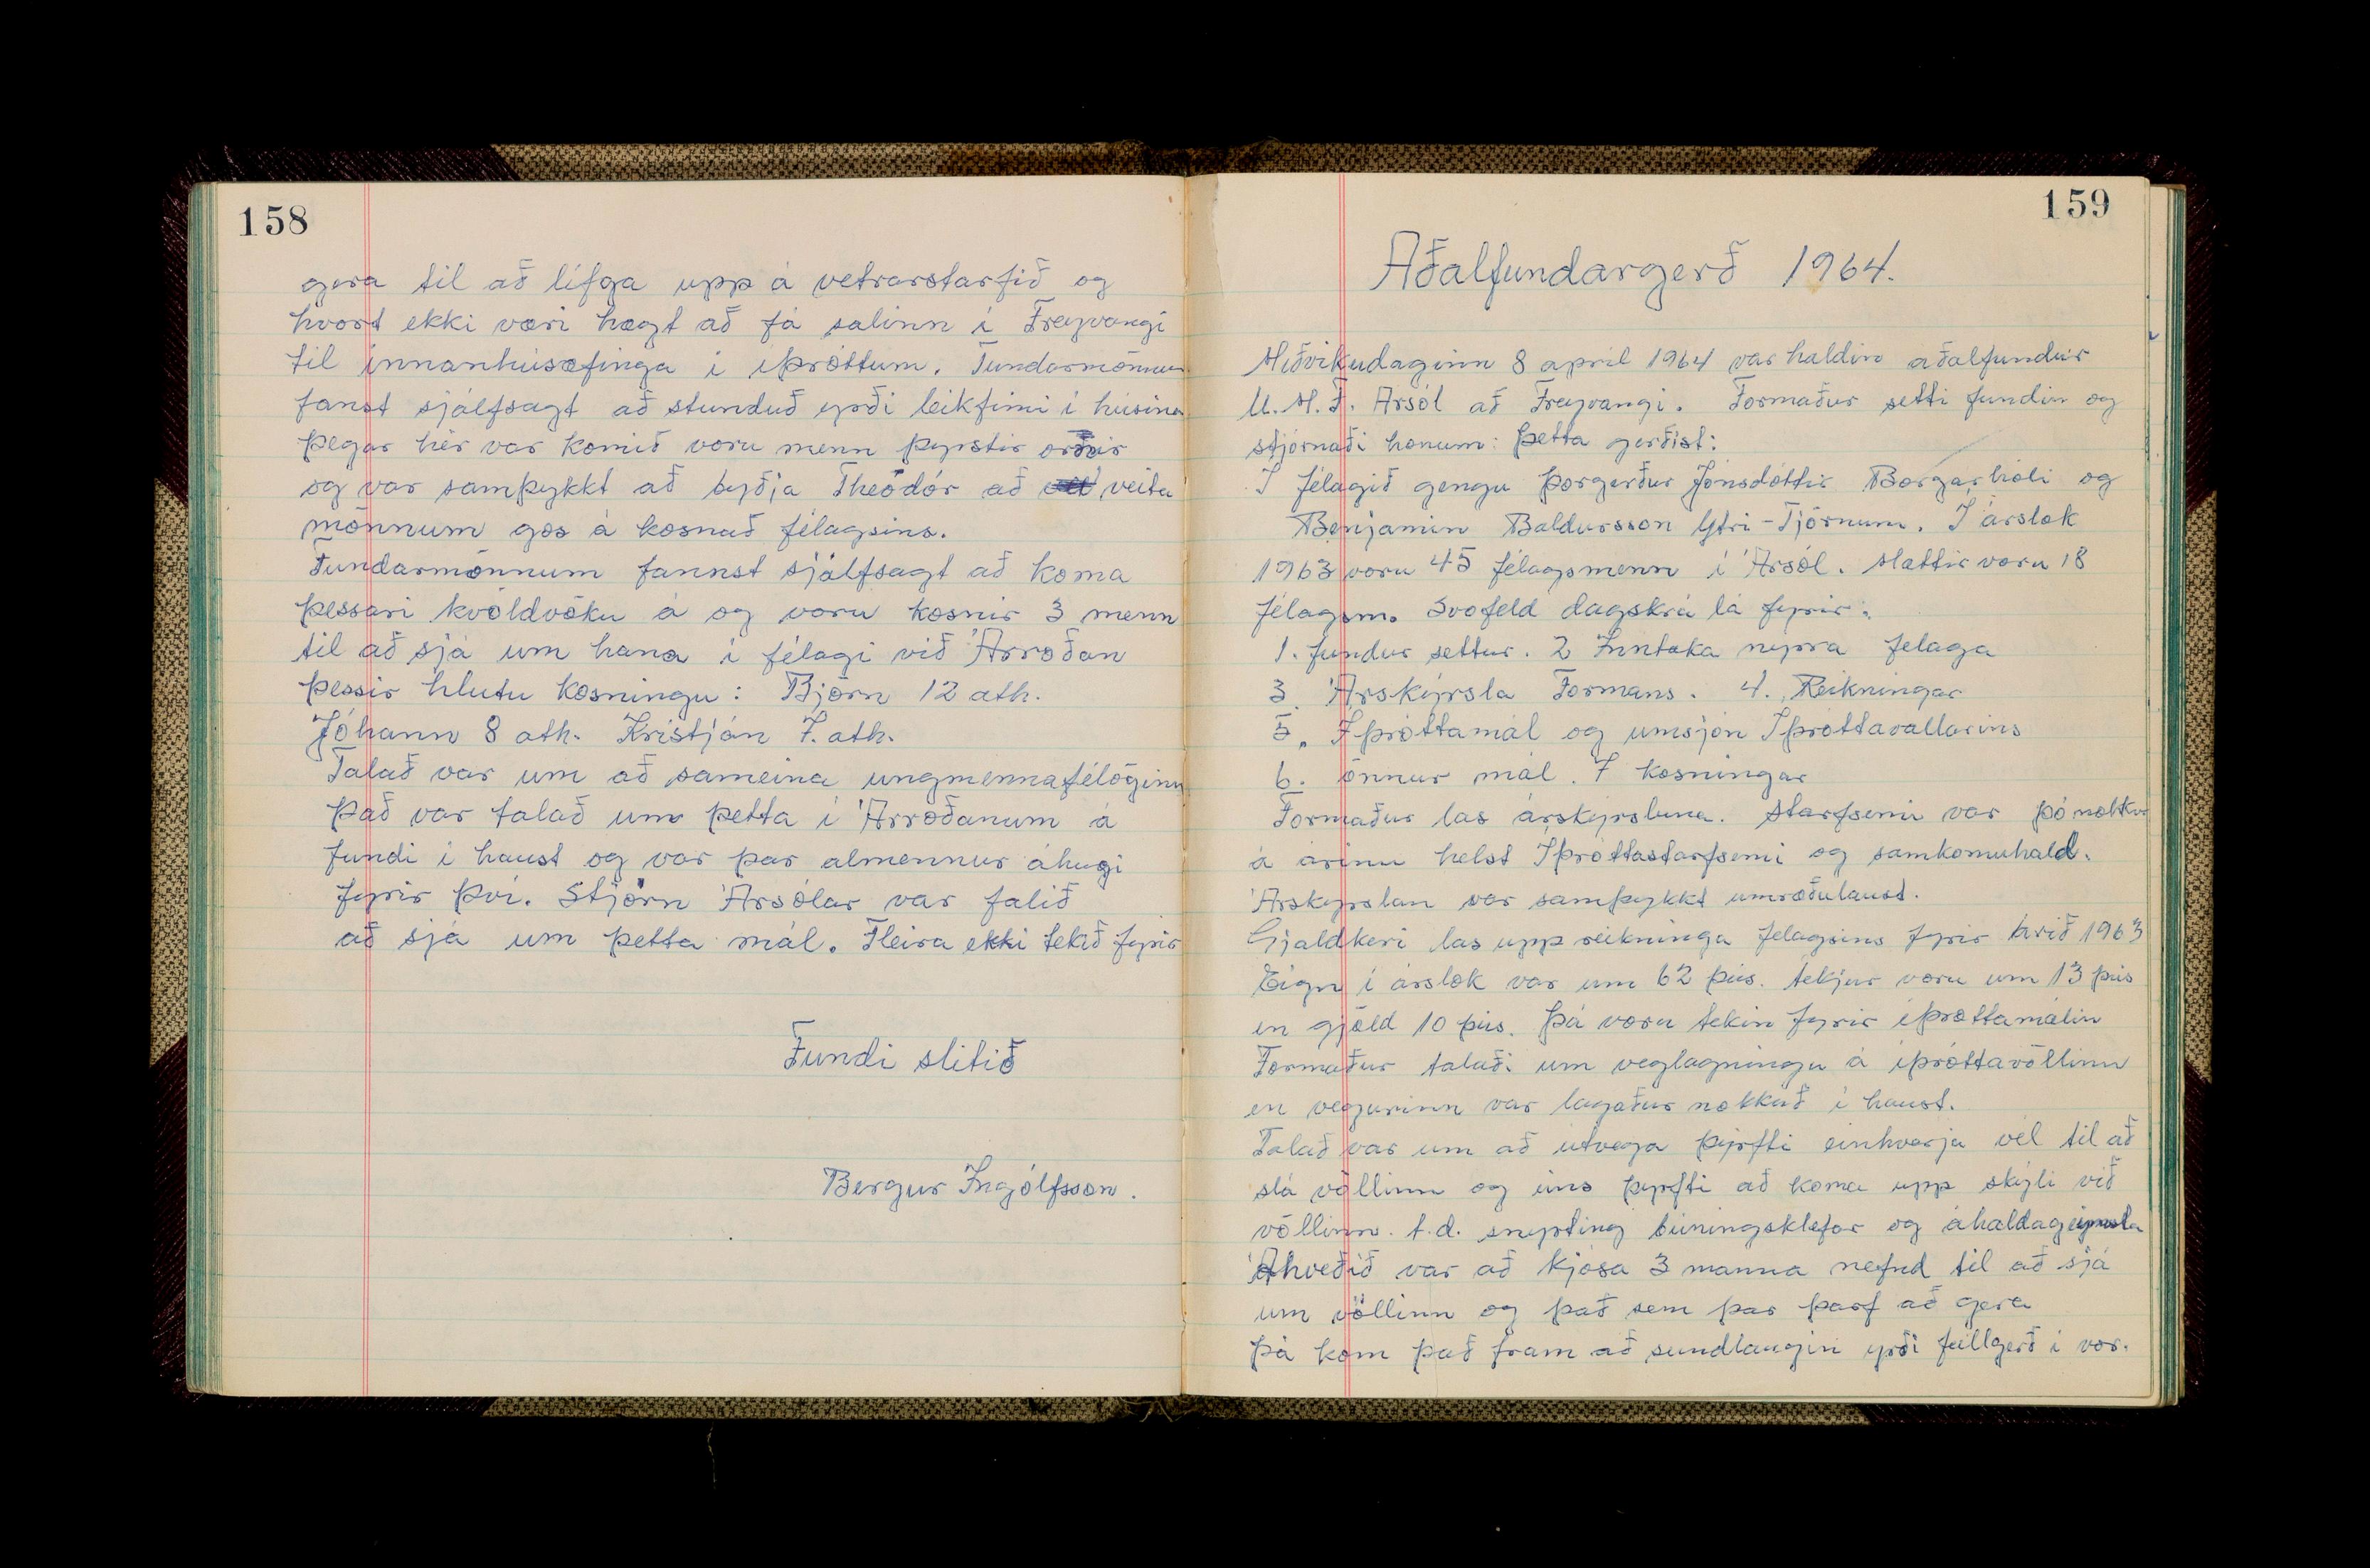 158
gera til að lífga upp á vetrarstarfið og
hvort ekki væri hægt að fá salinn í Freyvangi
til innanhúsæfinga í íþróttum. Fundarmönnum
fanst sjálfsagt að stunduð yrði leikfimi í húsinu
þegar hér var komið voru menn þyrstir orðnir
og var samþykkt að byðja Theódór að veita
mönnum gos á kosnað félagsins.
Fundarmönnum fannst sjálfsagt að koma
þessari kvöldvöku á og voru kosnir 3 menn
til að sjá um hana í félagi við Árroðan
þessir hlutu kosningu: Björn 12 atk.
Jóhann 8 atk. Kristján 7. atk.
Talað var um að sameina ungmennafélöginn
Það var talað um þetta í Árroðanum á
fundi í haust og var þar almennur áhugi
fyrir því. Stjórn Ársólar var falið
að sjá um þetta mál. Fleira ekki tekið fyrir
Fundi slitið
Bergur Ingólfsson.
159
Aðalfundargerð 1964.
Miðvikudaginn 8 apríl 1964 var haldin aðalfundur
U.M.F. Ársól að Freyvangi. Formaður setti fundin og
stjórnaði honum: Þetta gerðist:
Í félagið gengu Þorgerður Jónsdóttir Borgarhóli og
Benjamín Baldursson Ytri-Tjörnum. Í árslok
1963 voru 45 félagsmenn í Ársól. Mættir voru 18
félagsm. Svofeld dagskrá lá fyrir:
1. fundur settur. 2 Inntaka nyrra felaga
3. Árskýrsla Formans. 4. Reikningar
5. Íþróttamál og umsjón Íþróttavallarins
6. önnur mál. 7 kosningar
Formaður las árskýrsluna. Starfsemi var þó nokkur
á árinu helst Íþróttastarfsemi og samkomuhald.
Árskyrslan var samþykkt umræðulaust.
Gjaldkeri las upp reikninga félagsins fyrir árið 1963
Eign í árslok var um 62 þús. tekjur voru um 13 þús
en gjöld 10 þús. Þá voru tekin fyrir íþróttamálin
Formaður talaði um veglagningu á íþróttavöllinn
en vegurinn var lagaður nokkuð í haust.
Talað var um að útvega þyrfti einhverja vél til að
slá völlinn og eins þyrfti að koma upp skýli við
völlinn. t.d. snyrting búningsklefar og áhaldageymsla
Ákveðið var að kjósa 3 manna nefnd til að sjá
um völlinn og það sem þar þarf að gera
Þá kom það fram að sundlaugin yrði fullgerð í vor.